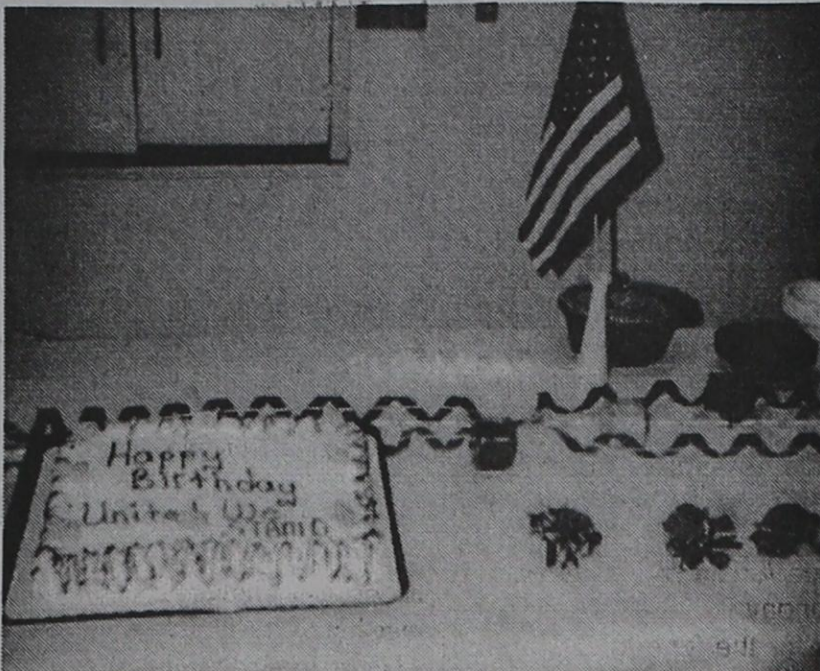 Happy
Birthday
United We
STAND